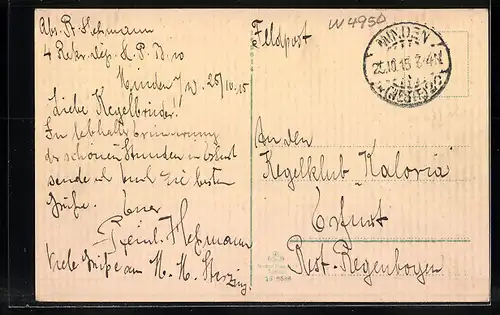 Abs. R. Hehmann
4 Rekr. dep. H. P. B. 10
Minden i/W. 25/10.15
Liebe Kegelbrüder!
In lebhafter Erinnerung
der schönen Stunden in Erfurt
sende ich Euch die besten
Grüße.
Euer
Reinh. Hehmann
Viele Grüße an
Feldpost
W4950
MINDEN
25.10.15 3-4N
(WESTF)
An den
Kegelklub "Kaloria"
Erfurt
Rest. Regenbogen